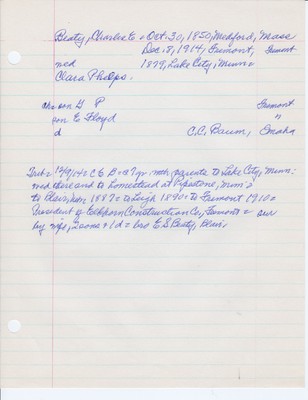 Beaty, Charles E = Oct. 30, 1850, Medford, Mass
Dec. 18, 1914, Fremont, Fremont
md 1879, Lake City, Minn =
Clara Phelps.
chr son G P Fremont
son E Floyd "
d C.C. Baum, Omaha
Trib = 12/19/14 = C E B = a 7 yr with parents to Lake City, Minn:
md there and to homestead at Pipestone, Minn =
to Blair, Nebr, 1887 = to Leigh 1890 = to Fremont 1910 =
President of Elkhorn Construction Co., Fremont = sur
by wife, 2 sons & 1 d = bro E S Beaty, Blair.